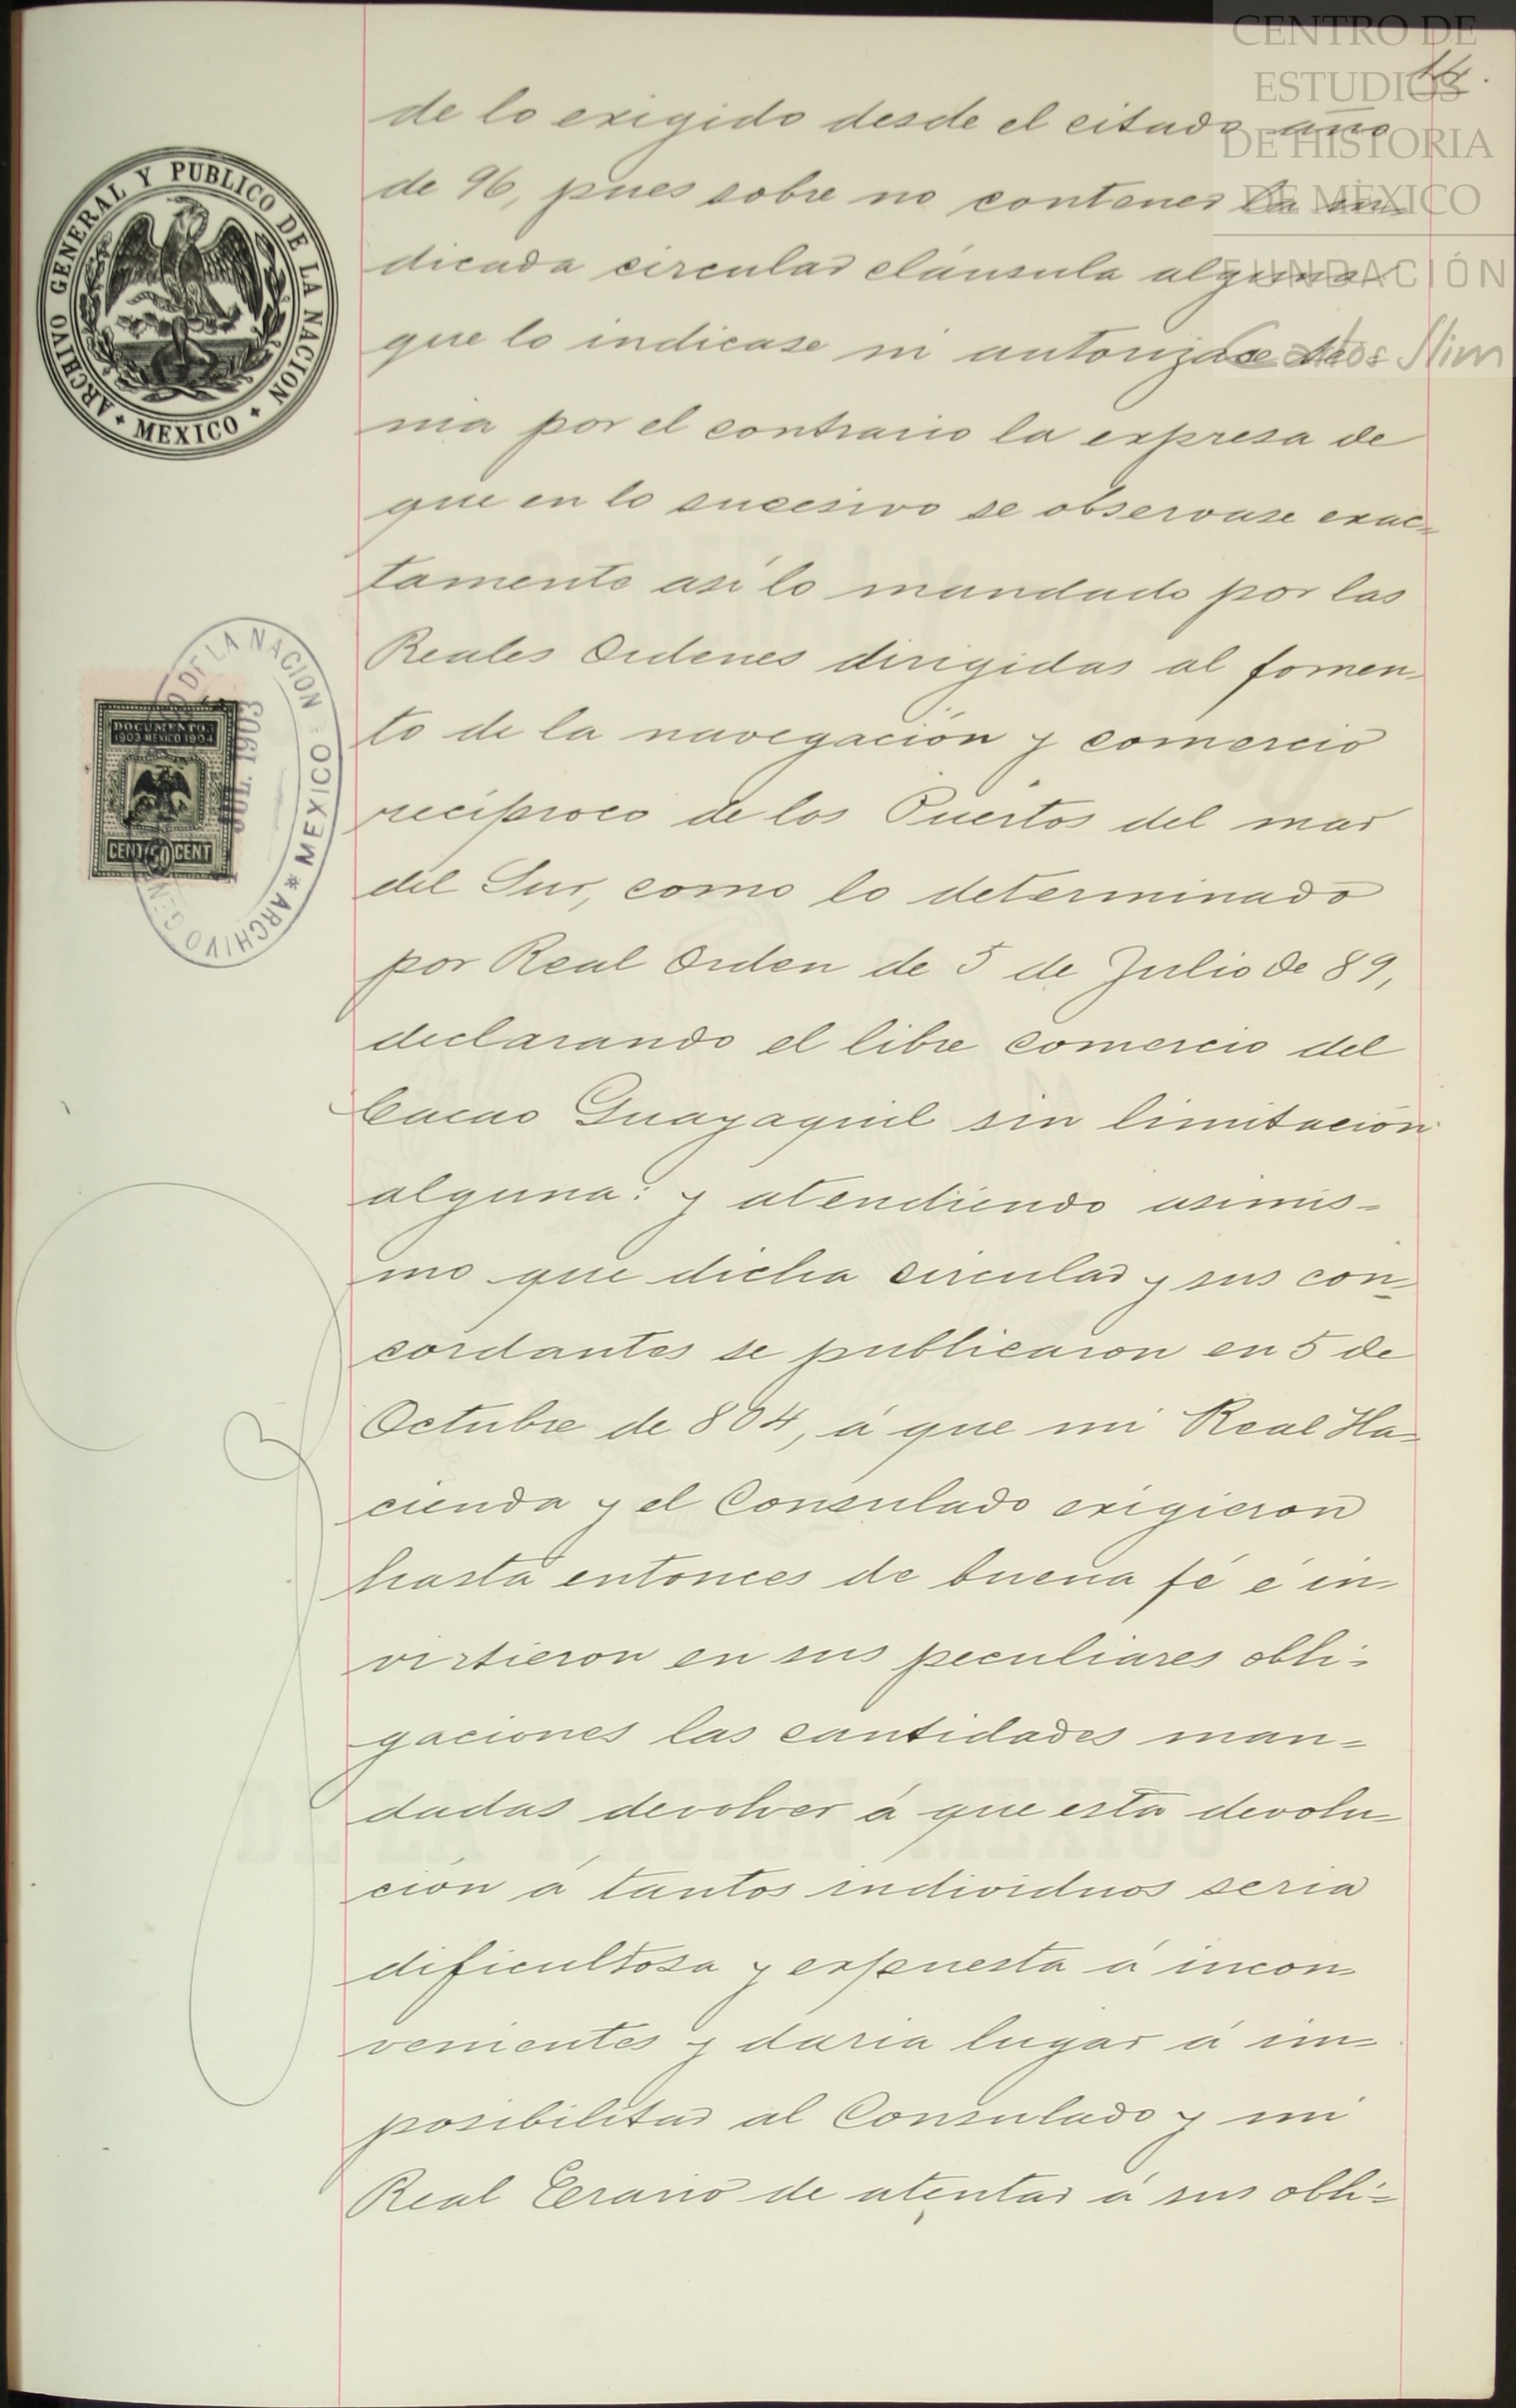 CENTRO DE
ESTUDIOS
DE HISTORIA
DE MÉXICO
FUNDACIÓN
Carlos Slim
14.
ARCHIVO GENERAL Y PUBLICO DE LA NACION
MEXICO
DOCUMENTOS
1903 MEXICO 1904
CENT 50 CENT
JUL. 1903
ARCHIVO GENERAL DE LA NACION
MEXICO
de lo exigido desde el citado año
de 96, pues sobre no contener la in=
dicada circular cláusula alguna
que lo indicase ni autorizase te=
nia por el contrario la expresa de
que en lo sucesivo se observase exac=
tamente así lo mandado por las
Reales Ordenes dirigidas al fomen=
to de la navegación y comercio
recíproco de los Puertos del mar
del Sur, como lo determinado
por Real Orden de 5 de Julio de 89,
declarando el libre comercio del
Cacao Guayaquil sin limitación
alguna: y atendiendo asimis=
mo que dicha circular y sus con=
cordantes se publicaron en 5 de
Octubre de 804, á que mi Real Ha=
cienda y el Consulado exigieron
hasta entonces de buena fé é in=
virtieron en sus peculiares obli=
gaciones las cantidades man=
dadas devolver á que esta devolu=
ción á tantos individuos seria
dificultosa y expuesta á incon=
venientes y daria lugar á im=
posibilitar al Consulado y mi
Real Erario de atentar á sus obli=